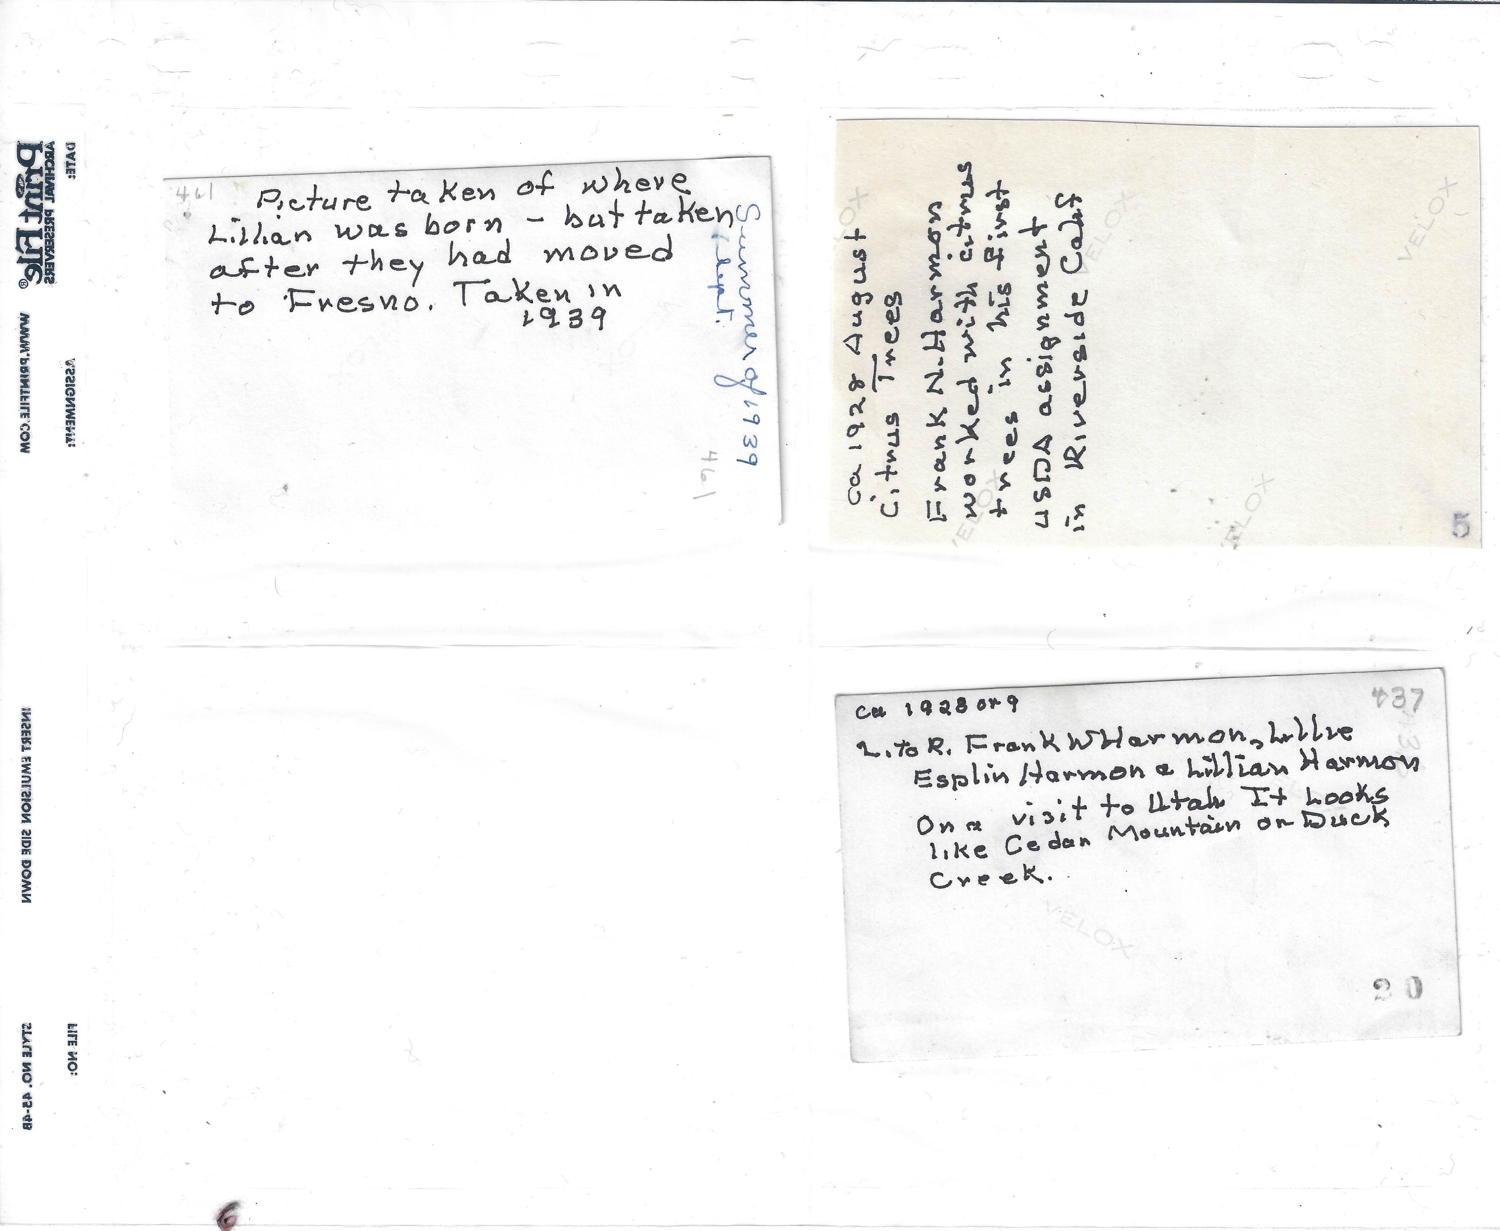 461
Picture taken of where
Lillian was born - but taken
after they had moved
to Fresno. Taken in
1939
Summer of 1939
461
ca 1928 August
Citrus Trees
Frank N. Harmon
worked with citrus
trees in his first
USDA assignment
in Riverside Calif
VELOX
VELOX
VELOX
VELOX
VELOX
5
ca 1928 or 9
437
L. to R. Frank W Harmon, Lillie
Esplin Harmon & Lillian Harmon
On a visit to Utah It Looks
like Cedar Mountain or Duck
Creek.
VELOX
20
DATE:
ARCHIVAL PRESERVERS
Print File®
WWW.PRINTFILE.COM
ASSIGNMENT:
INSERT EMULSION SIDE DOWN
FILE NO:
STYLE NO. 45-4B
6